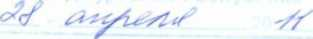 28 апреля 11